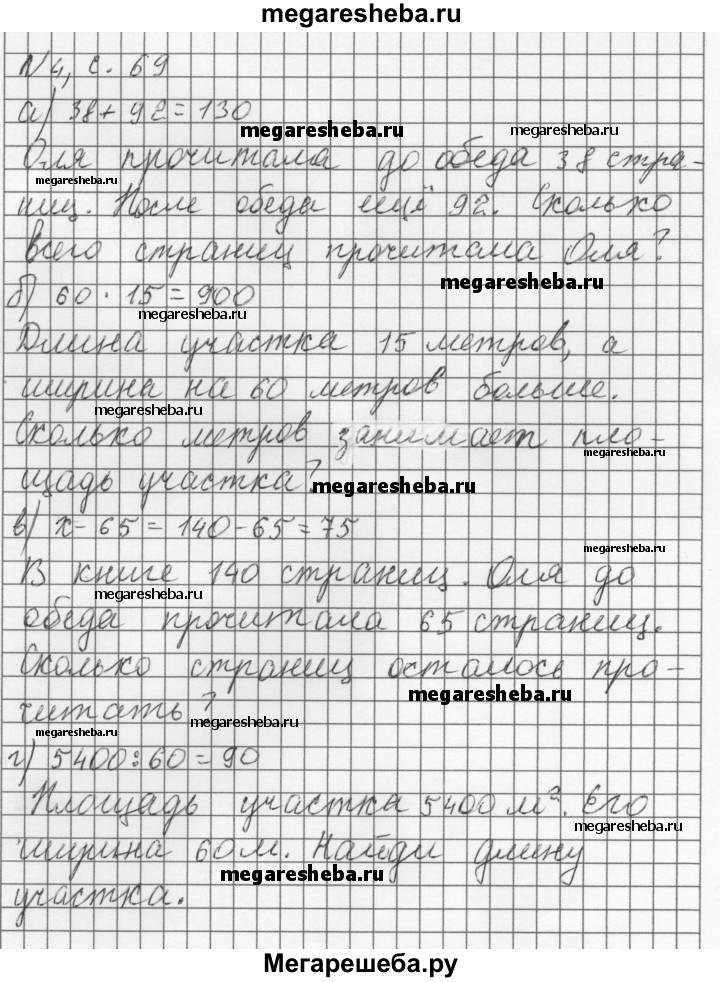 megaresheba.ru
N 4, с. 69
а) 38 + 92 = 130
megaresheba.ru megaresheba.ru
Оля прочитала до обеда 38 стра-
megaresheba.ru
ниц. После обеда ещё 92. Сколько
всего страниц прочитала Оля?
megaresheba.ru
б) 60 · 15 = 900
megaresheba.ru
Длина участка 15 метров, а
ширина на 60 метров больше.
megaresheba.ru
Сколько метров занимает пло-
щадь участка?
megaresheba.ru
в) х - 65 = 140 - 65 = 75
megaresheba.ru
В книге 140 страниц. Оля до
megaresheba.ru
обеда прочитала 65 страниц.
Сколько страниц осталось про-
megaresheba.ru
читать?
megaresheba.ru
megaresheba.ru
г) 5400 : 60 = 90
Площадь участка 5400 м². Его
megaresheba.ru
ширина 60 м. Найди длину
megaresheba.ru
участка.
Мегарешеба.ру